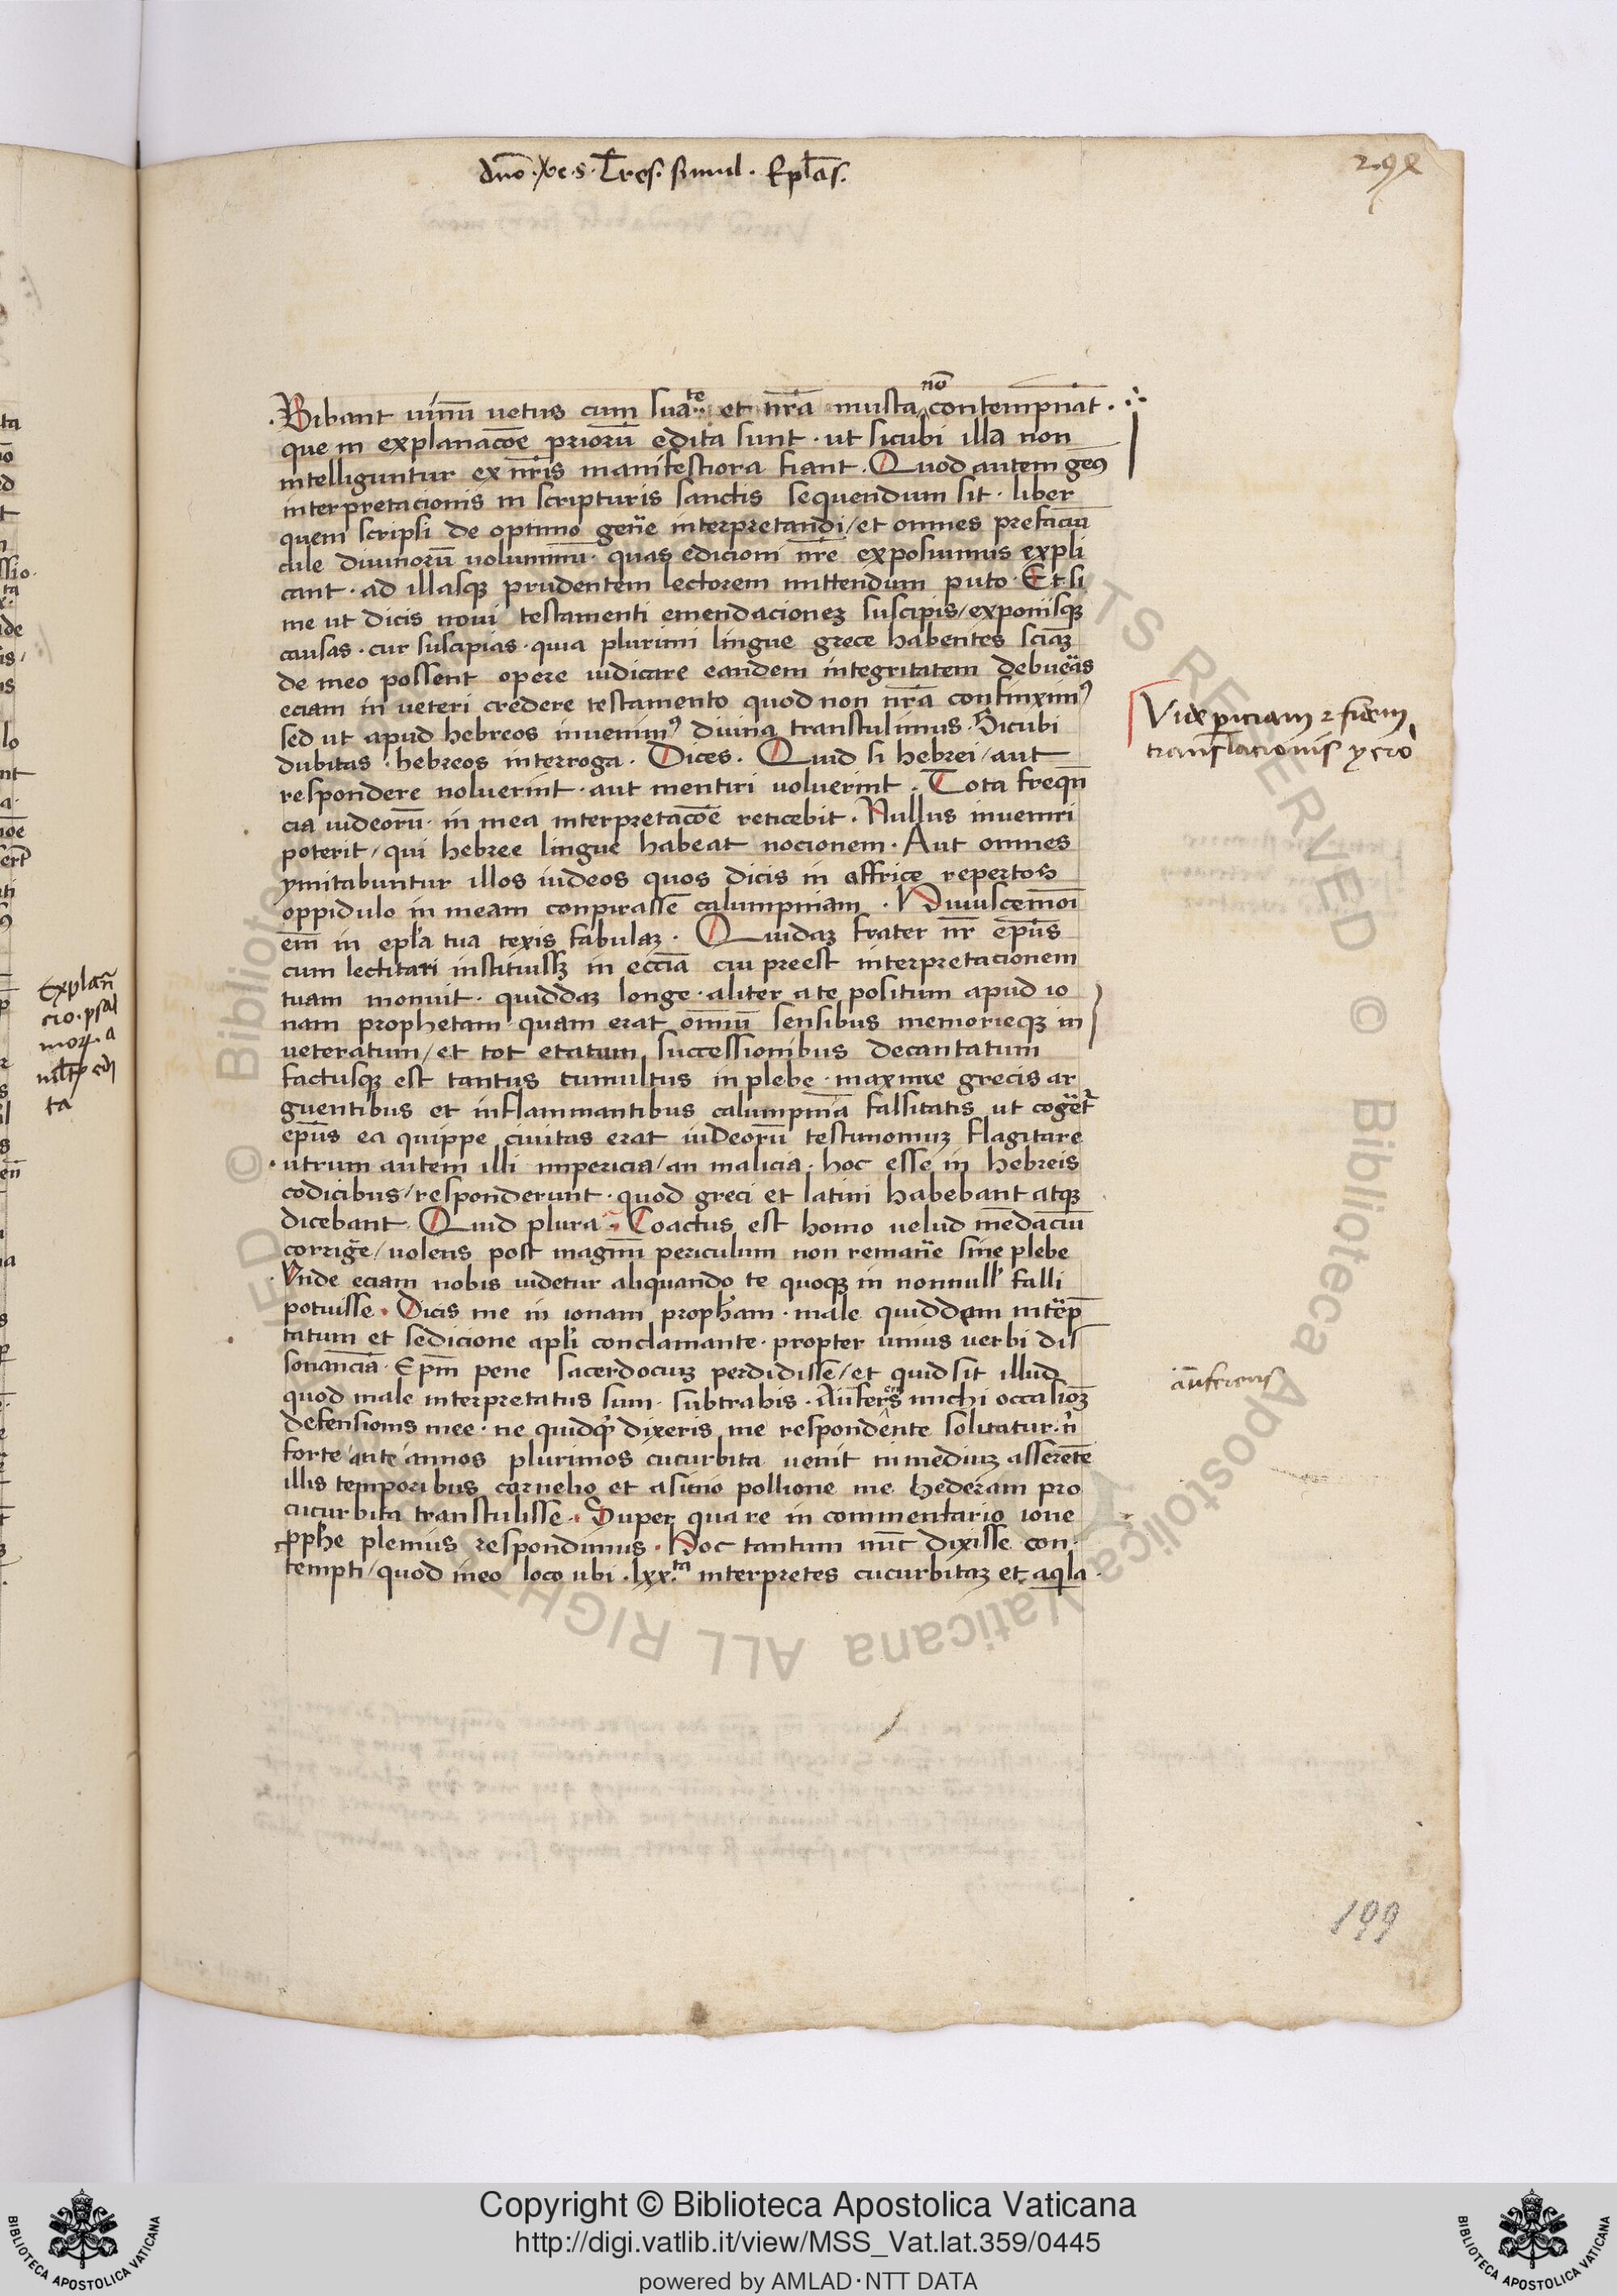 dño · xc · s · Tres · simul · Epl̃as ·
Bibant uinũ uetus cum suaᵗᵉ et nr̃a musta nõ contempnãt ·
que in explanacõe priorũ edita sunt · ut sicubi illa non
intelliguntur ex nr̃is manifestiora fiant · Quod autem geꝰ
interpretacionis in scripturis sanctis sequendum sit · liber
quem scripsi de optimo geñe interpretandi / et omnes prefaciũ
cule diuinorũ uoluminũ · quas edicioni nr̃e exposuimus expli
cant · ad illasqꝫ prudentem lectorem mittendum puto · Et si
me ut dicis noui testamenti emendacioneꝫ suscipis / exponisqꝫ
causas · cur suscipias · quia plurimi lingue grece habentes sciãꝫ
de meo possent opere iudicare eandem integritatem debueãs
eciam in ueteri credere testamento quod non nr̃a confinximꝰ
sed ut apud hebreos inuenimꝰ diuina transtulimus · Sicubi
dubitas · hebreos interroga · Dices · Quid si hebrei / aut
respondere noluerint · aut mentiri uoluerint · Tota freqñ
cia iudeorũ · in mea interpretacõe reticebit · Nullus inueniri
poterit / qui hebree lingue habeat nocionem · Aut omnes
ymitabuntur illos iudeos quos dicis in affrice repertos
oppidulo in meam conpirassẽ calumpniam · Huiuscemõi
em̃ in epl̃a tua texis fabulaꝫ · Quidaꝫ frater nr̃ ep̃us
cum lectitari instituissꝫ in eccĩa cui preest interpretacionem
tuam monuit · quiddaꝫ longe · aliter a te positum apud io
nam prophetam quam erat om̃iũ sensibus memorieqꝫ in
ueteratum / et tot etatum successionibus decantatum
factusqꝫ est tantus tumultus in plebe · maxime grecis ar
guentibus et inflammantibus calumpniã falsitatis ut coget̃
ep̃us ea quippe ciuitas erat iudeorũ testimoniuꝫ flagitare
utrum autem illi impericia / an malicia · hoc esse in hebreis
codicibus / responderunt · quod greci et latini habebant atqꝫ
dicebant · Quid plura · Coactus est homo uelud mẽdaciũ
corrigẽ / uolens post magnũ periculum non remanẽ sine plebe
Vnde eciam nobis uidetur aliquando te quoqꝫ in nonnull' falli
potuisse · Dicis me in ionam proph̃am · male quiddam intẽp̃
tatum et sedicione apl'i conclamante · propter unius uerbi dis
sonanciã · Ep̃m pene sacerdociuꝫ perdidissẽ / et quid sit illud
quod male interpretatus sum · subtrahis · Aufers michi occasioꝫ
defensionis mee · ne quidqͣ dixeris me respondente soluatur · ñ
forte ante annos plurimos cucurbita uenit in mediuꝫ asserẽte
illis temporibus cornelio et asinio pollione me hederam pro
cucurbita transtulisse · Super qua re in commentario ione
ꝓph̃e plenius respondimus · Hoc tantum nũc dixisse con
tempti / quod ineo loco ubi · lxxᵗᵃ interpretes cucurbitaꝫ et aqͥla ·
transl̃acionis
aũferens
Explañ
cio · psal
ta
199
Copyright © Biblioteca Apostolica Vaticana
http://digi.vatlib.it/view/MSS_Vat.lat.359/0445
powered by AMLAD·NTT DATA
BIBLIOTECA APOSTOLICA VATICANA
BIBLIOTECA APOSTOLICA VATICANA